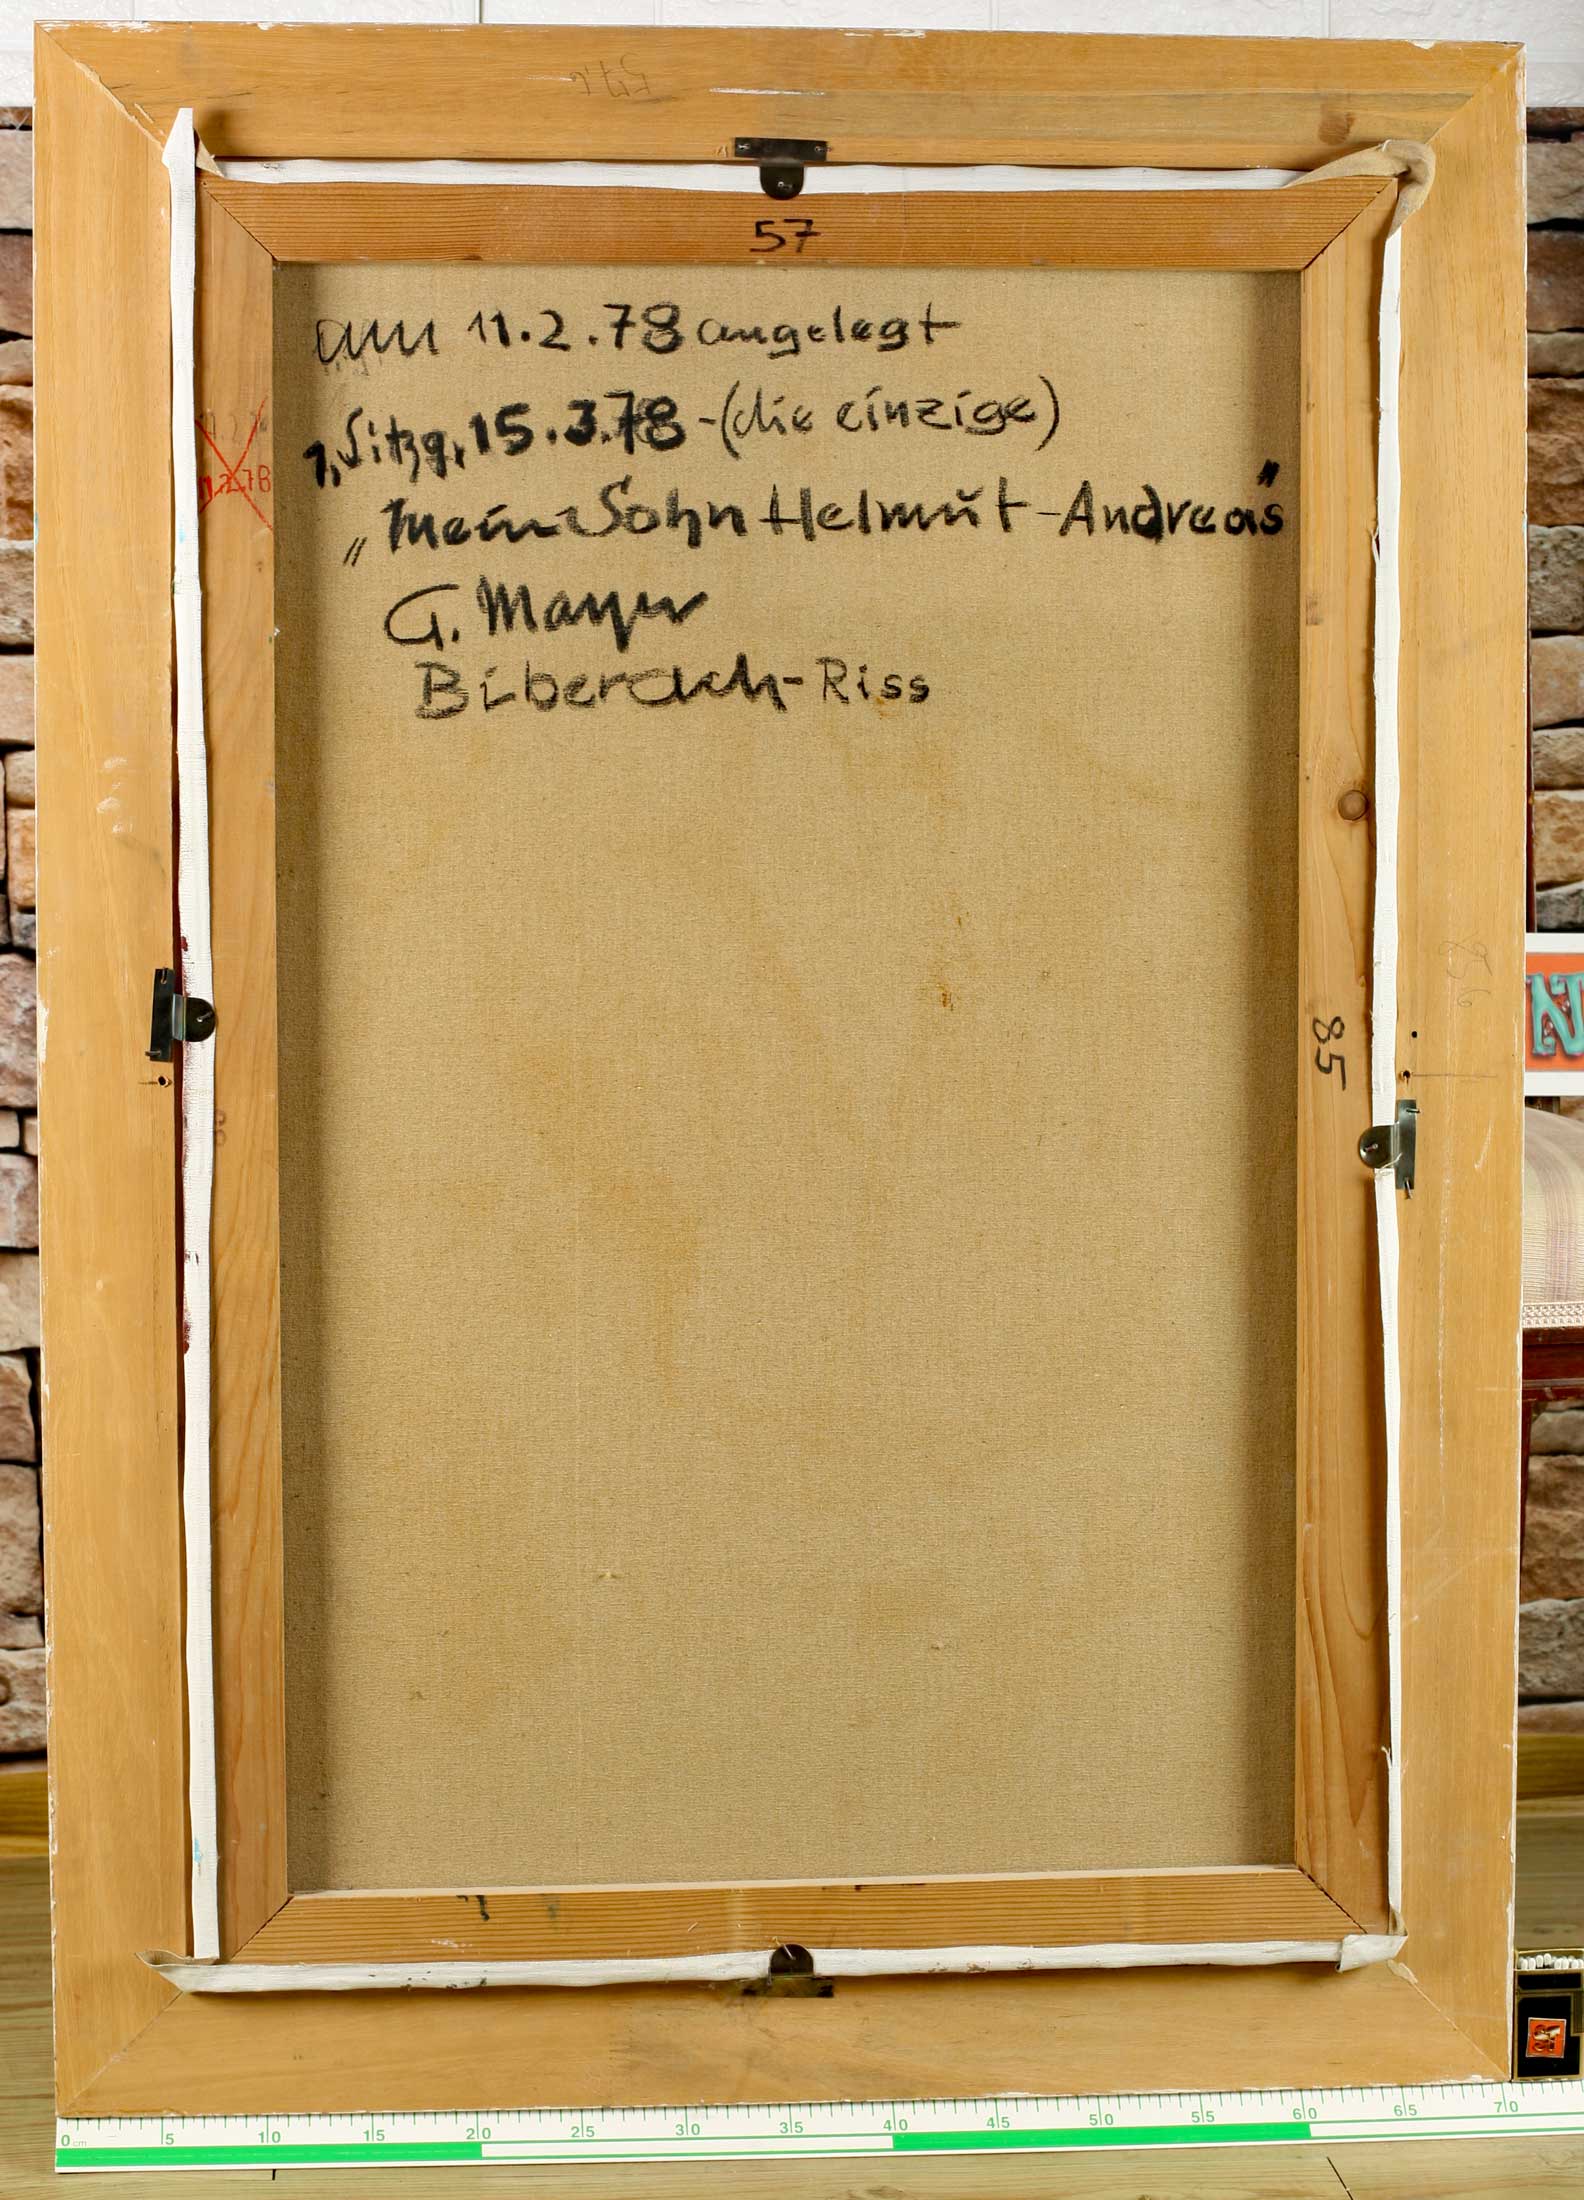 57
am 11.2.78 angelegt
1. Sitzg. 15.3.78 - (die einzige)
„Mein Sohn Helmut-Andreas"
G. Mayer
Biberach-Riss
11.2.78
85
N
0 cm 5 10 15 20 25 30 35 40 45 50 55 60 65 70